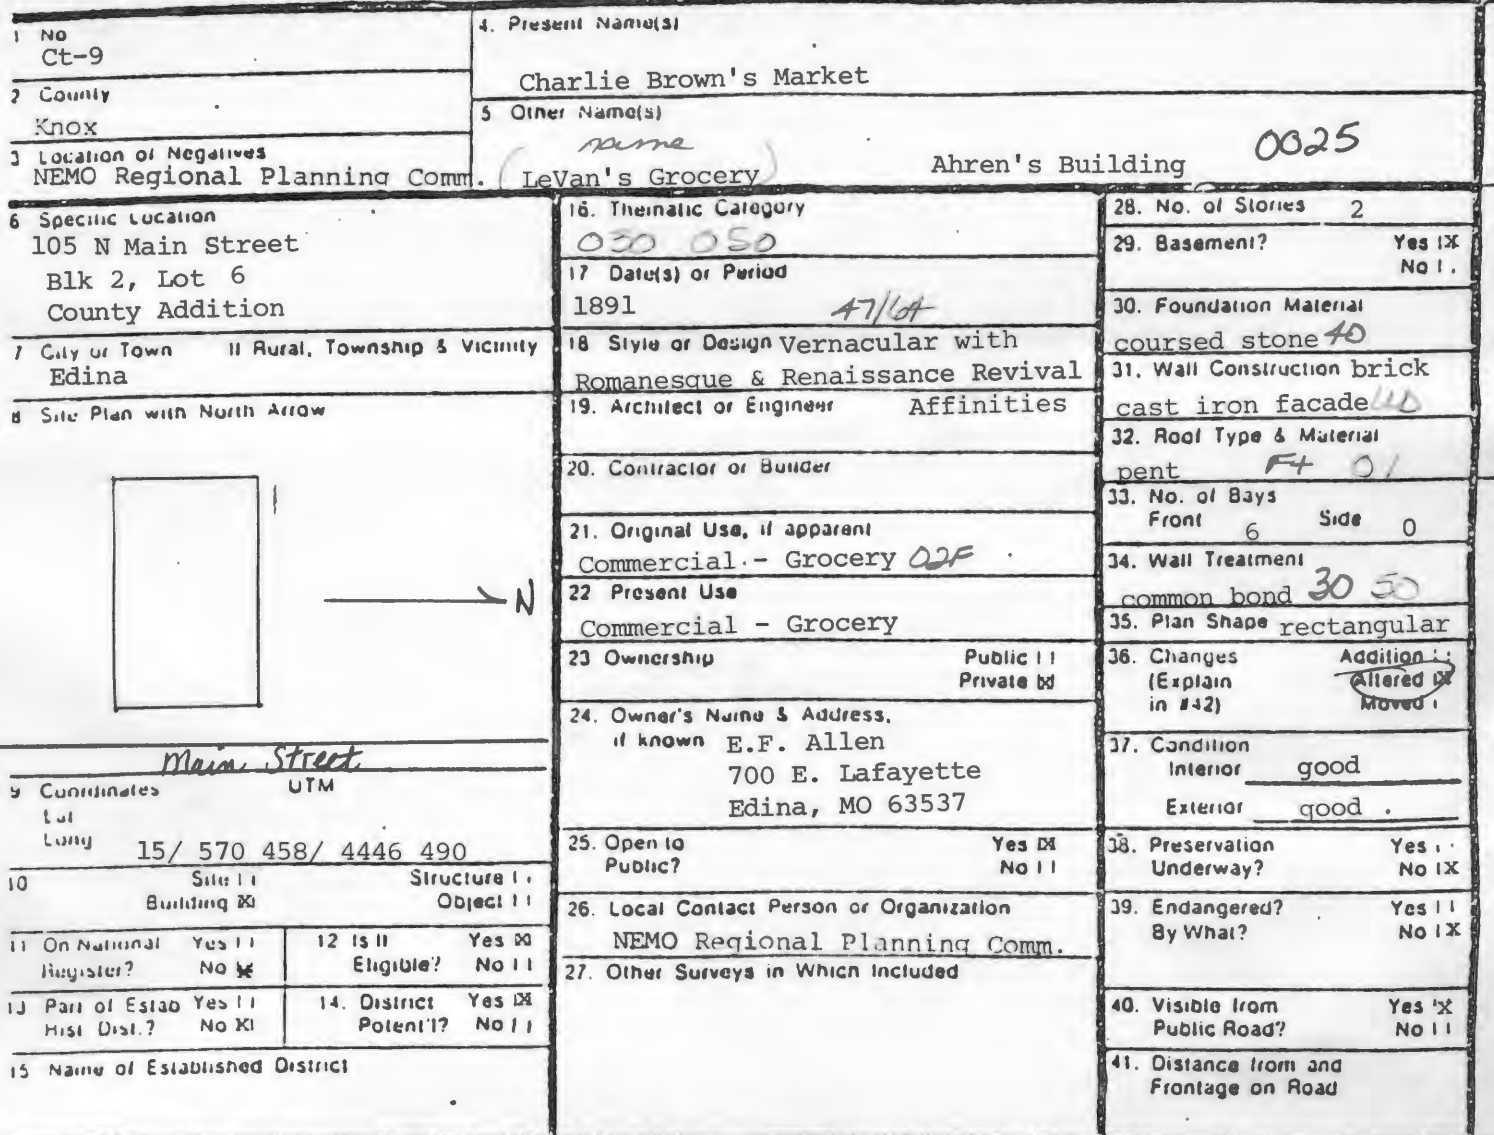 1 No
Ct-9
2 County
Knox
3 Location of Negatives
NEMO Regional Planning Comm.
4. Present Name(s)
Charlie Brown's Market
5 Other Name(s)
name
(LeVan's Grocery)
Ahren's Building
0025
6 Specific Location
105 N Main Street
Blk 2, Lot 6
County Addition
7 City or Town If Rural, Township & Vicinity
Edina
8 Site Plan with North Arrow
N
Main Street
9 Coordinates UTM
Lat
Long
15/ 570 458/ 4446 490
10 Site Structure
Building X Object
11 On National Register? Yes No X
12 Is It Eligible? Yes X No
13 Part of Estab Hist Dist.? Yes No X
14. District Potent'l? Yes X No
15 Name of Established District
16. Thematic Category
030 050
17 Date(s) or Period
1891 47/64
18 Style or Design Vernacular with
Romanesque & Renaissance Revival
Affinities
19. Architect or Engineer
20. Contractor or Builder
21. Original Use, if apparent
Commercial - Grocery 02F
22 Present Use
Commercial - Grocery
23 Ownership Public
Private X
24. Owner's Name & Address,
if known E.F. Allen
700 E. Lafayette
Edina, MO 63537
25. Open to Yes X
Public? No
26. Local Contact Person or Organization
NEMO Regional Planning Comm.
27. Other Surveys in Which Included
28. No. of Stories 2
29. Basement? Yes X
No
30. Foundation Material
coursed stone 40
31. Wall Construction brick
cast iron facade
32. Roof Type & Material
pent Ft 01
33. No. of Bays
Front 6 Side 0
34. Wall Treatment
common bond 30 50
35. Plan Shape rectangular
36. Changes Addition
(Explain Altered X
in #42) Moved
37. Condition
Interior good
Exterior good
38. Preservation Yes
Underway? No X
39. Endangered? Yes
By What? No X
40. Visible from Yes X
Public Road? No
41. Distance from and
Frontage on Road